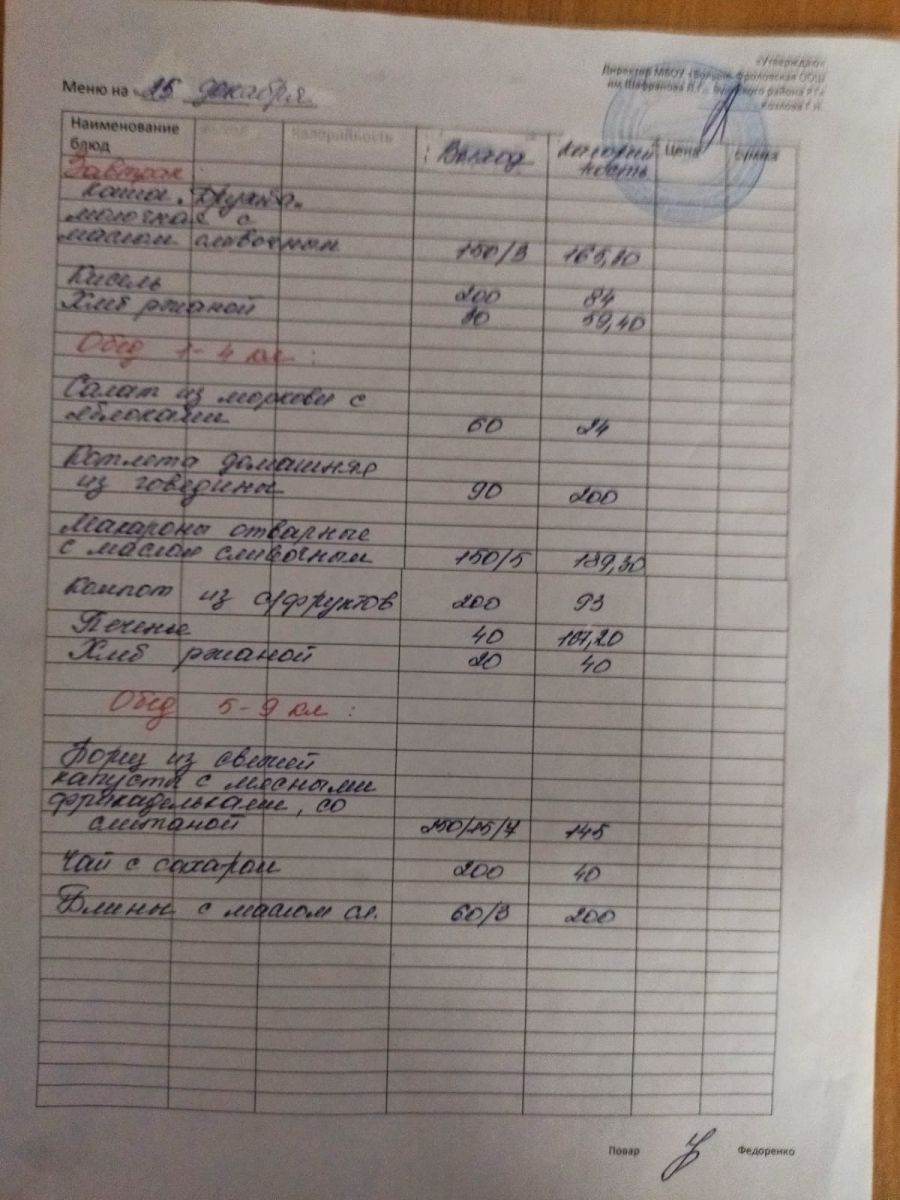 «Утверждаю»
Директор МБОУ «Волчье-Фроловская ООШ
им Шафранова П.Г. района РТ»
Козлова Г.Н.
Меню на «25 декабря
Наименование блюд Калорийность Выход Калорийность Цена сумма
Завтрак
каша "Дружба"
молочная с
маслом сливочным 150/3 165,10
Кисель 200 84
Хлеб ржаной 30 59,40
Обед 1-4 кл :
Салат из моркови с
яблоками 60 24
Котлета домашняя
из говядины 90 200
Макароны отварные
с маслом сливочным 150/5 189,30
Компот из с/фруктов 200 93
Печенье 40 167,20
Хлеб ржаной 20 40
Обед 5-9 кл :
Борщ из свежей
капусты с мясными
фрикадельками, со
сметаной 250/15/7 145
Чай с сахаром 200 40
Блины с маслом сл. 60/3 200
Повар Федоренко